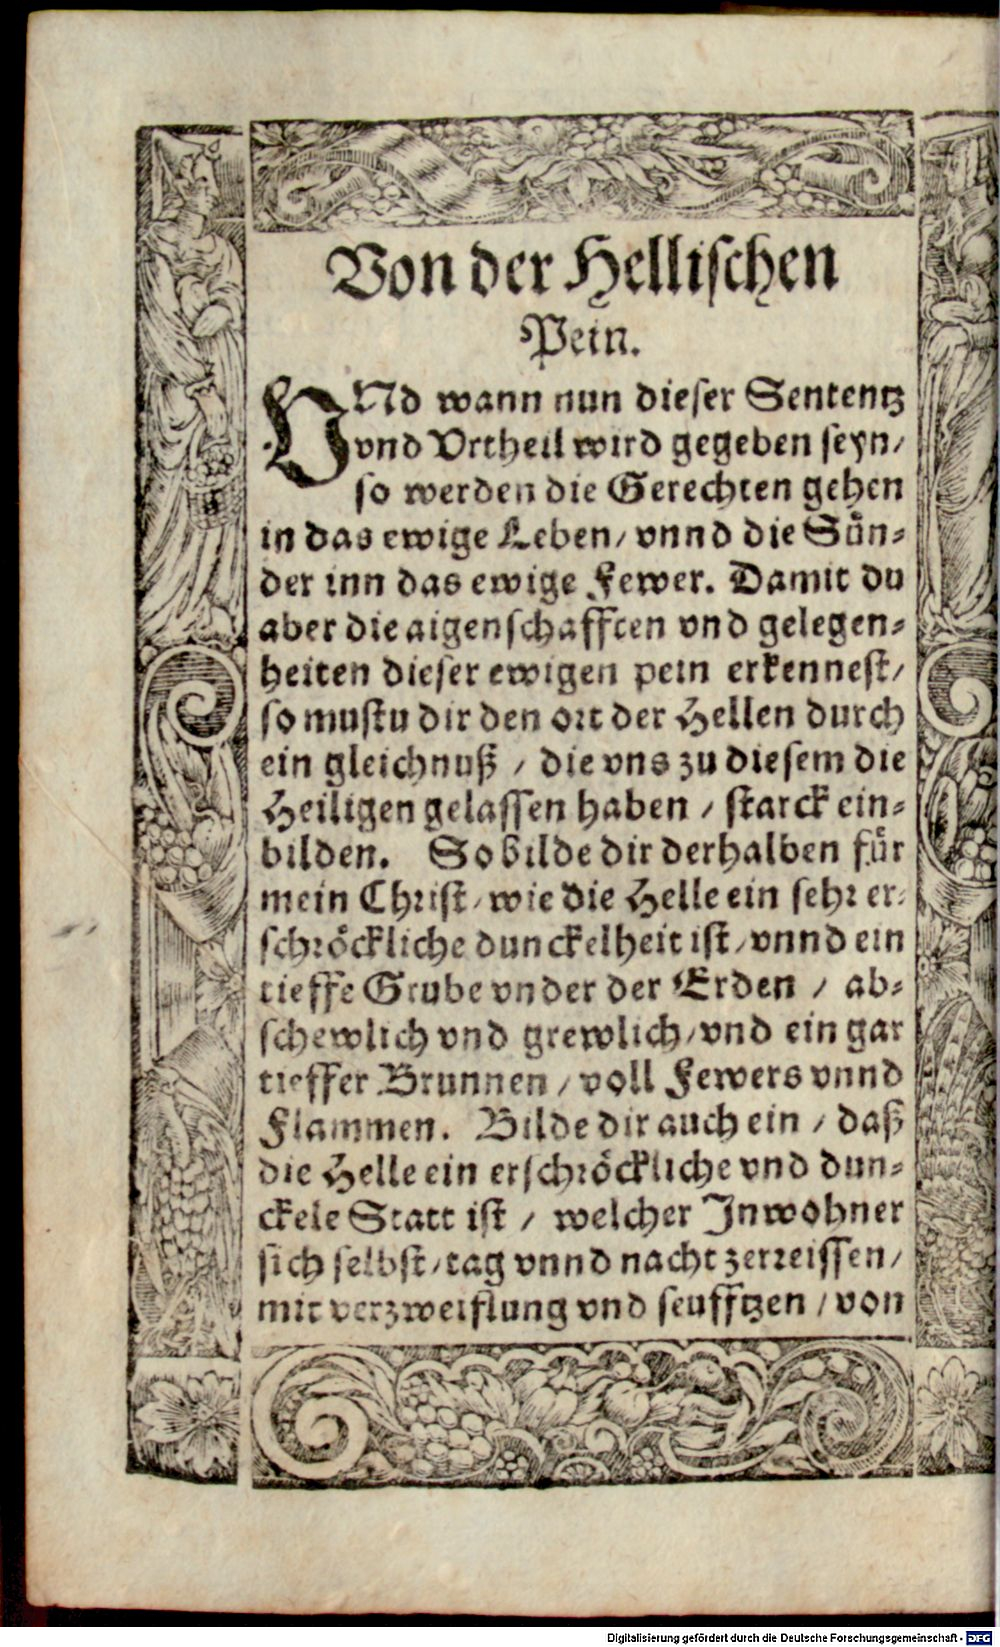 Von der Hellischen
Pein.
VNd wann nun dieser Sententz
vnd Vrtheil wird gegeben seyn/
so werden die Gerechten gehen
in das ewige Leben/ vnnd die Sün-
der inn das ewige Fewer. Damit du
aber die aigenschafften vnd gelegen-
heiten dieser ewigen pein erkennest/
so mustu dir den ort der Hellen durch
ein gleichnuß / die vns zu diesem die
Heiligen gelassen haben / starck ein-
bilden. So bilde dir derhalben für
mein Christ/ wie die Helle ein sehr er-
schröckliche dunckelheit ist/ vnnd ein
tieffe Grube vnder der Erden / ab-
schewlich vnd grewlich/ vnd ein gar
tieffer Brunnen / voll Fewers vnnd
Flammen. Bilde dir auch ein / daß
die Helle ein erschröckliche vnd dun-
ckele Statt ist / welcher Jnwohner
sich selbst/ tag vnnd nacht zerreissen/
mit verzweiflung vnd seufftzen / von
Digitalisierung gefördert durch die Deutsche Forschungsgemeinschaft - DFG